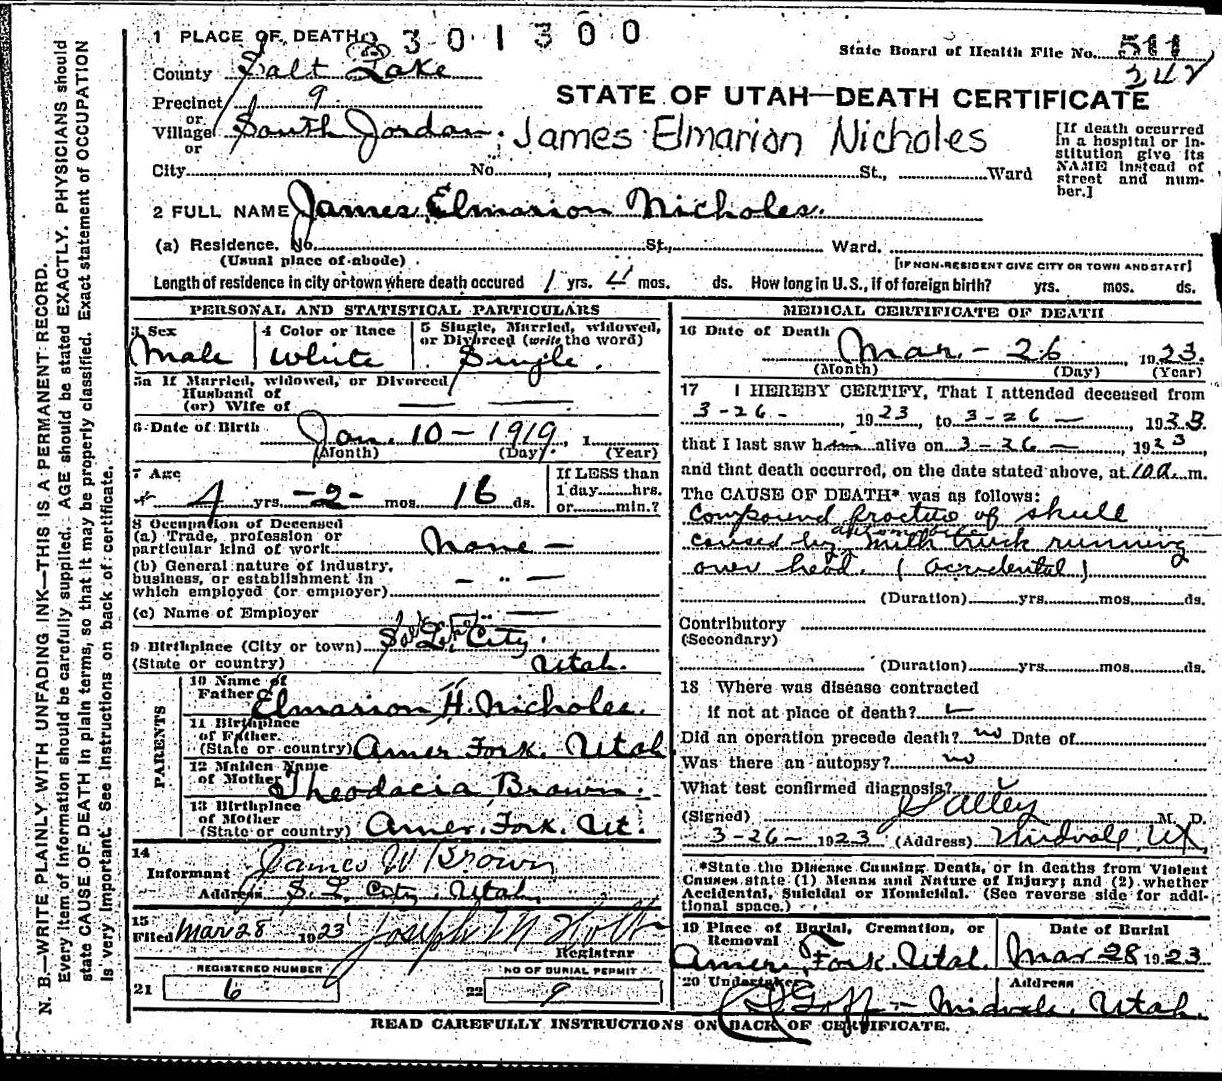 1 PLACE OF DEATH 2301300
State Board of Health File No. 511
County Salt Lake
242
Precinct 9
STATE OF UTAH—DEATH CERTIFICATE
or
Village South Jordan
James Elmarion Nicholes
or
[If death occurred in a hospital or institution give its NAME instead of street and number.]
City No. St., Ward
2 FULL NAME James Elmarion Nicholes.
(a) Residence. No. St., Ward.
(Usual place of abode)
[IF NON-RESIDENT GIVE CITY OR TOWN AND STATE]
Length of residence in city or town where death occured 1 yrs. 4 mos. ds. How long in U.S., if of foreign birth? yrs. mos. ds.
PERSONAL AND STATISTICAL PARTICULARS
3 Sex
Male
4 Color or Race
White
5 Single, Married, widowed,
or Divorced (write the word)
Single.
5a If Married, widowed, or Divorced
Husband of
(or) Wife of
6 Date of Birth Jan. 10 - 1919, 1
(Month) (Day) (Year)
7 Age
4 yrs. - 2 - mos. 16 ds.
If LESS than
1 day hrs.
or min.?
8 Occupation of Deceased
(a) Trade, profession or
particular kind of work None -
(b) General nature of industry,
business, or establishment in
which employed (or employer) - " -
(c) Name of Employer
9 Birthplace (City or town) Salt Lake City.
(State or country) Utah.
PARENTS
10 Name of
Father Elmarion H. Nicholes.
11 Birthplace
of Father.
(State or country) Amer Fork. Utah
12 Maiden Name
of Mother Theodacia Brown.
13 Birthplace
of Mother
(State or country) Amer. Fork. Ut.
14
Informant James W Brown
Address S. L. City, Utah
15
Filed Mar 28 1923 Joseph M Holt
Registrar
REGISTERED NUMBER
21 6
NO OF BURIAL PERMIT
22 9
MEDICAL CERTIFICATE OF DEATH
16 Date of Death Mar - 26, 1923.
(Month) (Day) (Year)
17 I HEREBY CERTIFY, That I attended deceased from
3-26-, 1923 to 3-26-, 1923.
that I last saw him alive on 3-26-, 1923,
and that death occurred, on the date stated above, at 10 a. m.
The CAUSE OF DEATH* was as follows:
Compound fracture of skull
caused by milk truck running
over head. (accidental)
(Duration) yrs. mos. ds.
Contributory
(Secondary)
(Duration) yrs. mos. ds.
18 Where was disease contracted
if not at place of death?
Did an operation precede death? no Date of
Was there an autopsy? no
What test confirmed diagnosis?
(Signed) M. D.
3-26-1923 (Address) Midvale, Ut.
*State the Disease Causing Death, or in deaths from Violent
Causes state (1) Means and Nature of Injury; and (2) whether
Accidental, Suicidal or Homicidal. (See reverse side for addi-
tional space.)
19 Place of Burial, Cremation, or
Removal
Amer. Fork. Utah.
Date of Burial
Mar 28 1923
20 Undertaker
Goff - Midvale. Utah.
Address
READ CAREFULLY INSTRUCTIONS ON BACK OF CERTIFICATE.
N. B.—WRITE PLAINLY WITH UNFADING INK—THIS IS A PERMANENT RECORD.
Every item of information should be carefully supplied. AGE should be stated EXACTLY. PHYSICIANS should
state CAUSE OF DEATH in plain terms, so that it may be properly classified. Exact statement of OCCUPATION
is very important. See instructions on back of certificate.